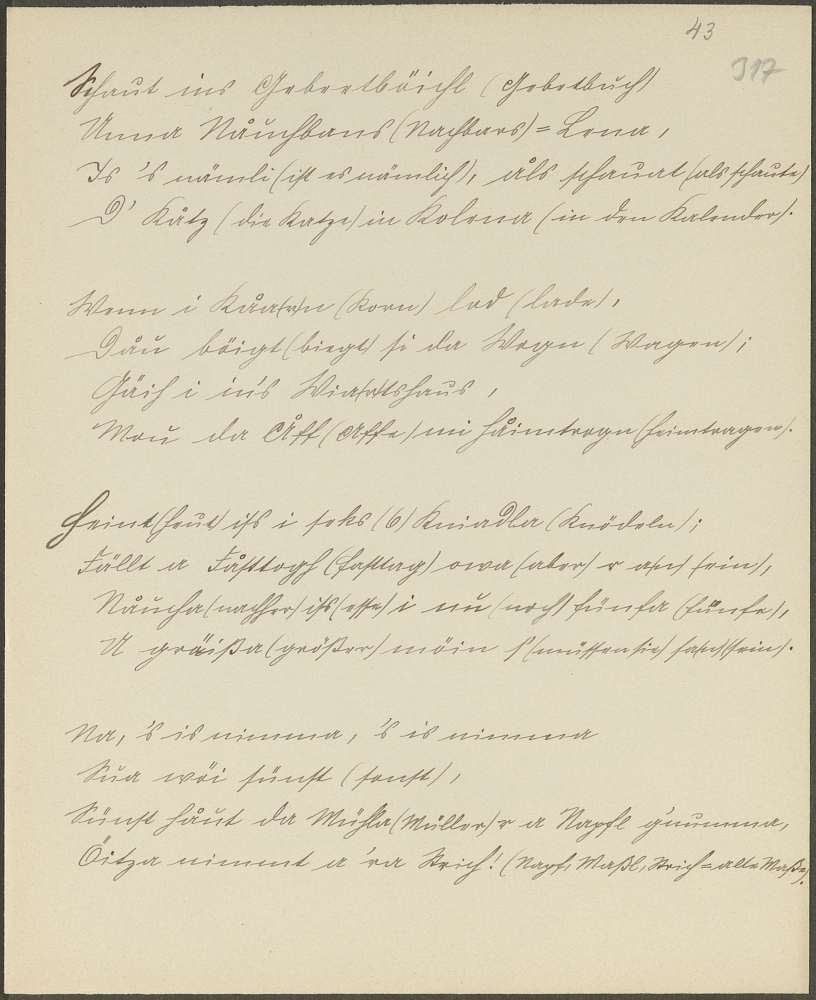 43
317
Schaut ins Gebeetböichl (Gebetbuch)
Unna Nåuchbans (Nachbars) = Lena,
Is 's nämli (ist es nämlich), åls schauat (als schaute)
D' Kåtz (die Katze) in Kolena (in den Kalender).
Wenn i Kåa(r)n (Korn) lod (lade),
Dåu böigt (biegt) si da Wogn (Wagen);
Gäih i in's Wia(r)tshaus,
Mou da Åff (Affe) mi håimtrogn (heimtragen).
Heint (heut) iss i seks (6) Kniadla (Knödeln);
Fållt a Fåsttogh (Fasttag) owa (aber) r a(n) (ein),
Nåucha (nachher) iss (esse) i nu (noch) fünfa (fünfe),
U gräißa (größer) möin s' (müssen sie) sa(n) (sein).
Na, 's is nimma, 's is nimma
Sua wöi sünst (sonst),
Sünst håut da Mühla (Müller) r a Napfl g'numma,
Öitza nimmt a 'ra Strich! (Napf, Maßl, Strich = alte Maße).